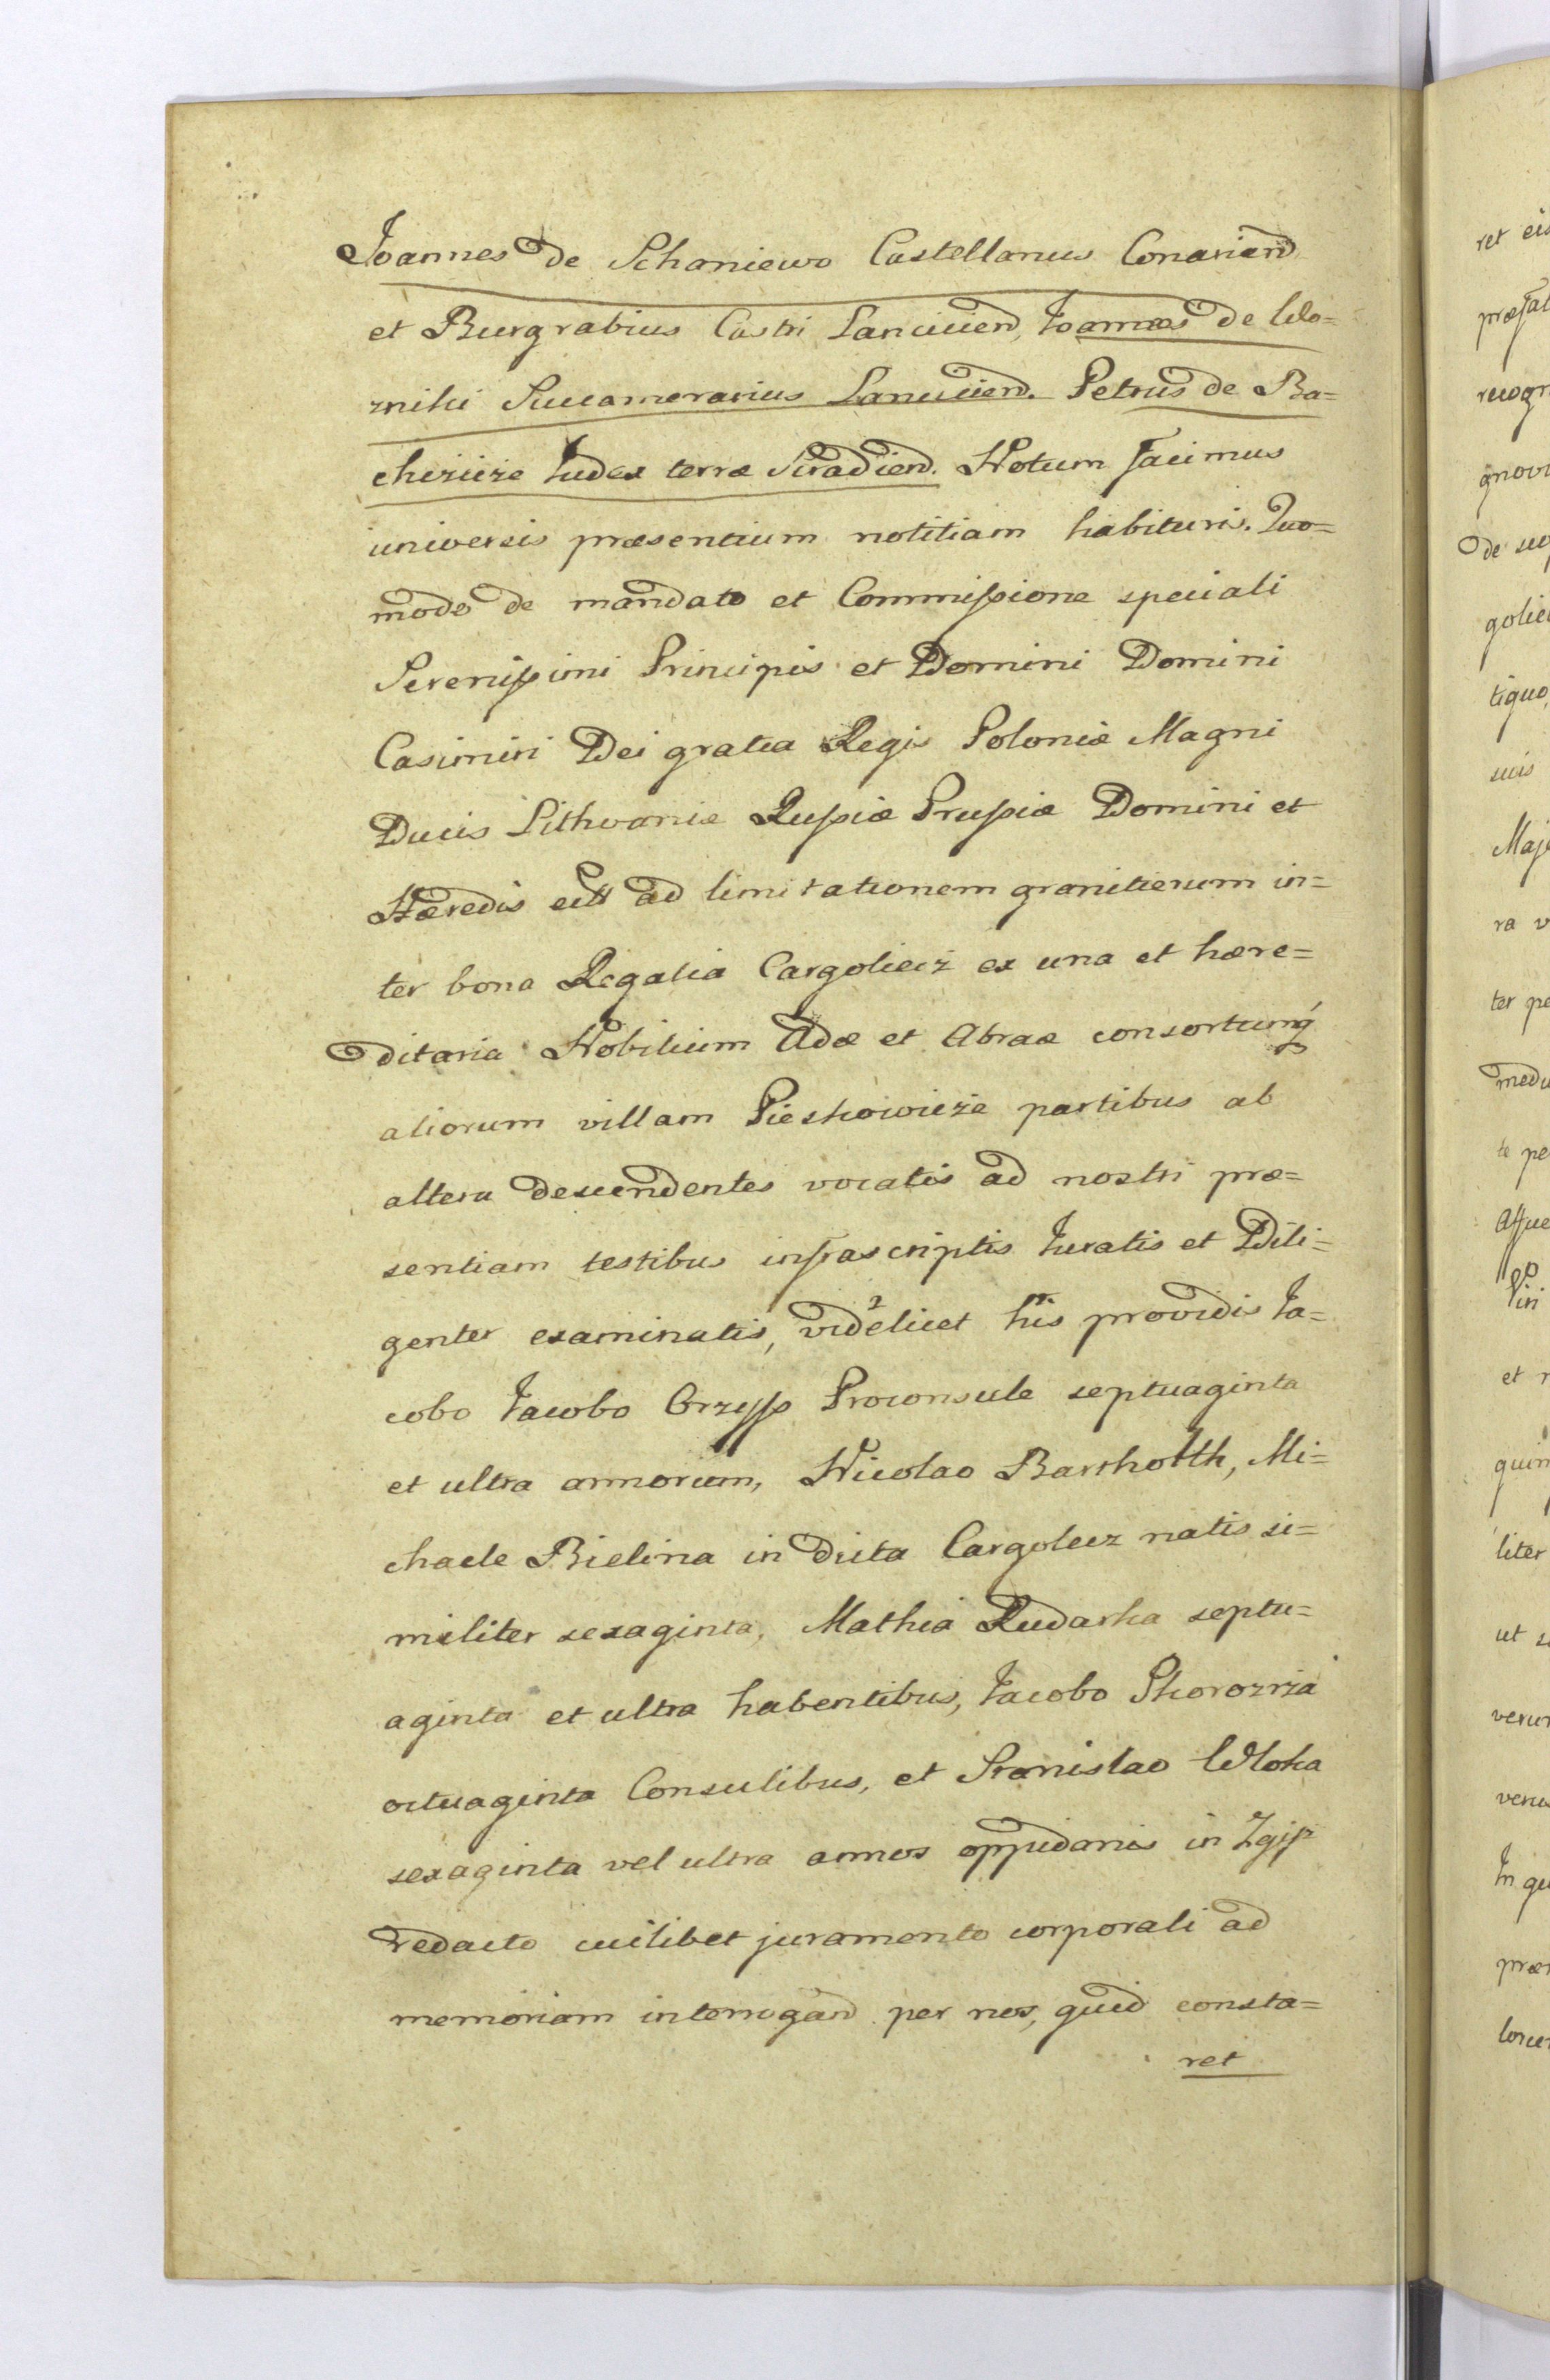 Joannes de Schaniewo Castellanus Conarien̄d
et Burgrabius Castri Lanciciend, Joannes de Wo=
zniki Succamerarius Lanciciend. Petrus de Ba=
chizicze Judex terræ Siradiend. Notum facimus
universis præsentium notitiam habituris. Quo=
modo de mandato et Commissione speciali
Serenissimi Principis et Domini Domini
Casimiri Dei gratia Regis Poloniæ Magni
Ducis Lithvaniæ Russiæ Prussiæ Domini et
Hæredis ectt ad limitationem granitierum in=
ter bona Regalia Cargoliecz ex una et hære=
ditaria Nobilium Adæ et Abraæ consortumq́
aliorum villam Pieskowicze partibus ab
altera descendentes vocatis ad nostri præ=
sentiam testibus infrascriptis Juratis et Dili=
genter examinatis, videlicet his providis Ja=
cobo Jacobo Grzyss Proconsule septuaginta
et ultra annorum, Nicolao Bartholth, Mi=
chaele Bielina in dicta Cargolecz natis si=
militer sexaginta, Mathia Rudarka septu=
aginta et ultra habentibus, Jacobo Skorozrza
octuaginta Consulibus, et Stanislao Wloka
sexaginta vel ultra annos oppidanis in Zgiss
redacto cuilibet juramento corporali ad
memoriam interrogand per nos, quid consta=
ret
ret
præfat
recogn
gnovi
de
golie
tiquo,
suis
Maje
ra v
ter pe
medi
te pe
et
quin
liter
ut
verum
In qu
præ